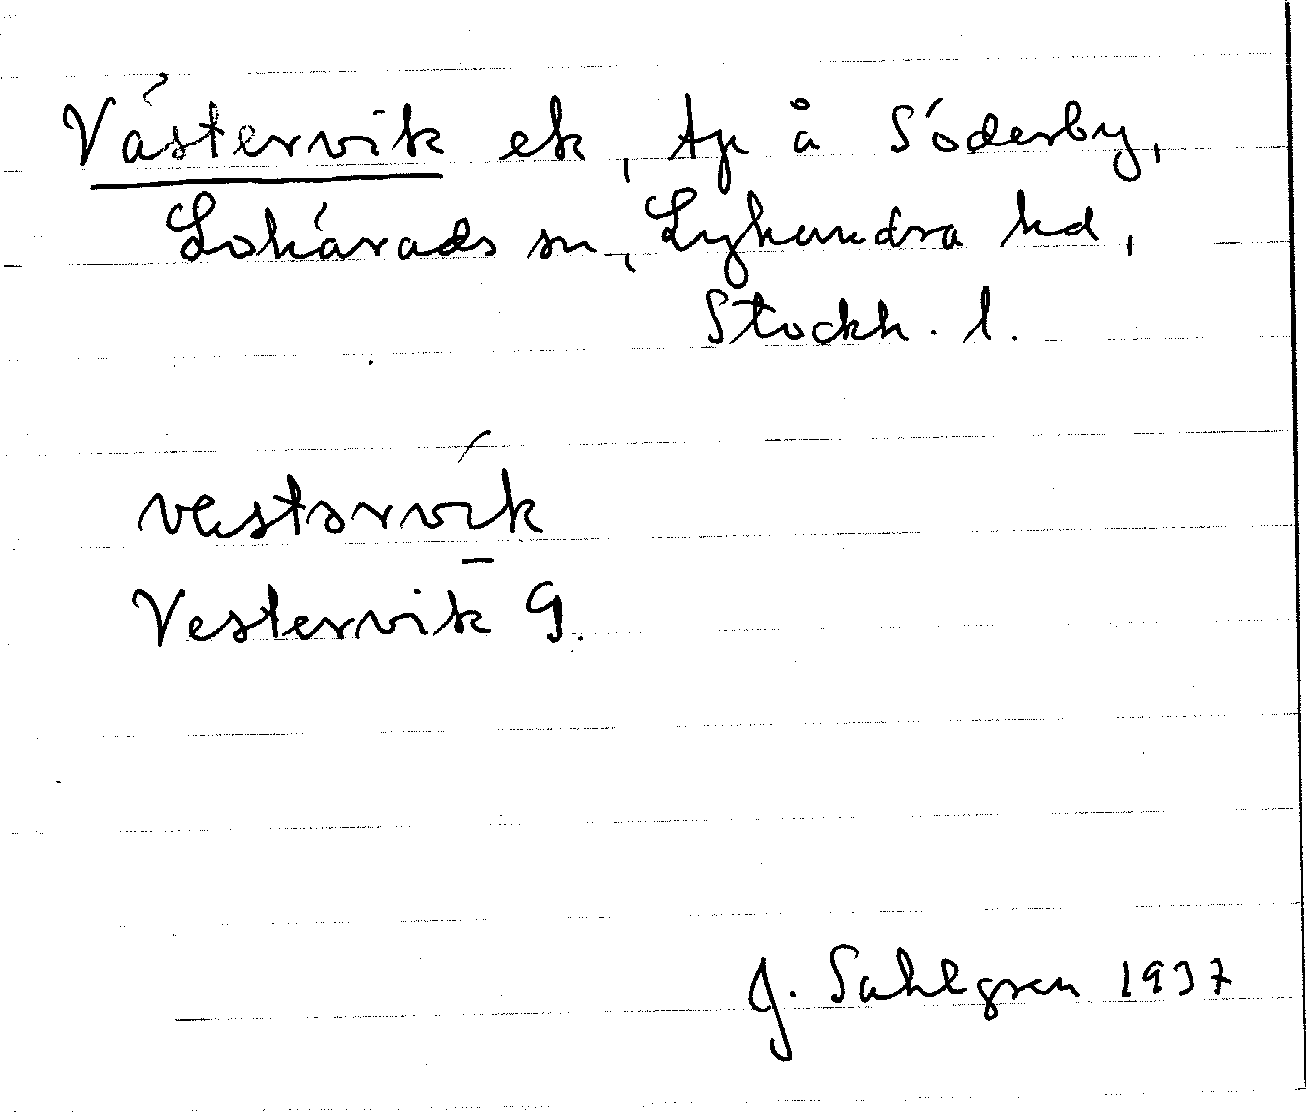 Västervik ek, tp å Söderby,
Lohärads sn, Lyhundra hd,
Stockh. l.
västərvik
Vestervik G.
J. Sahlgren 1937